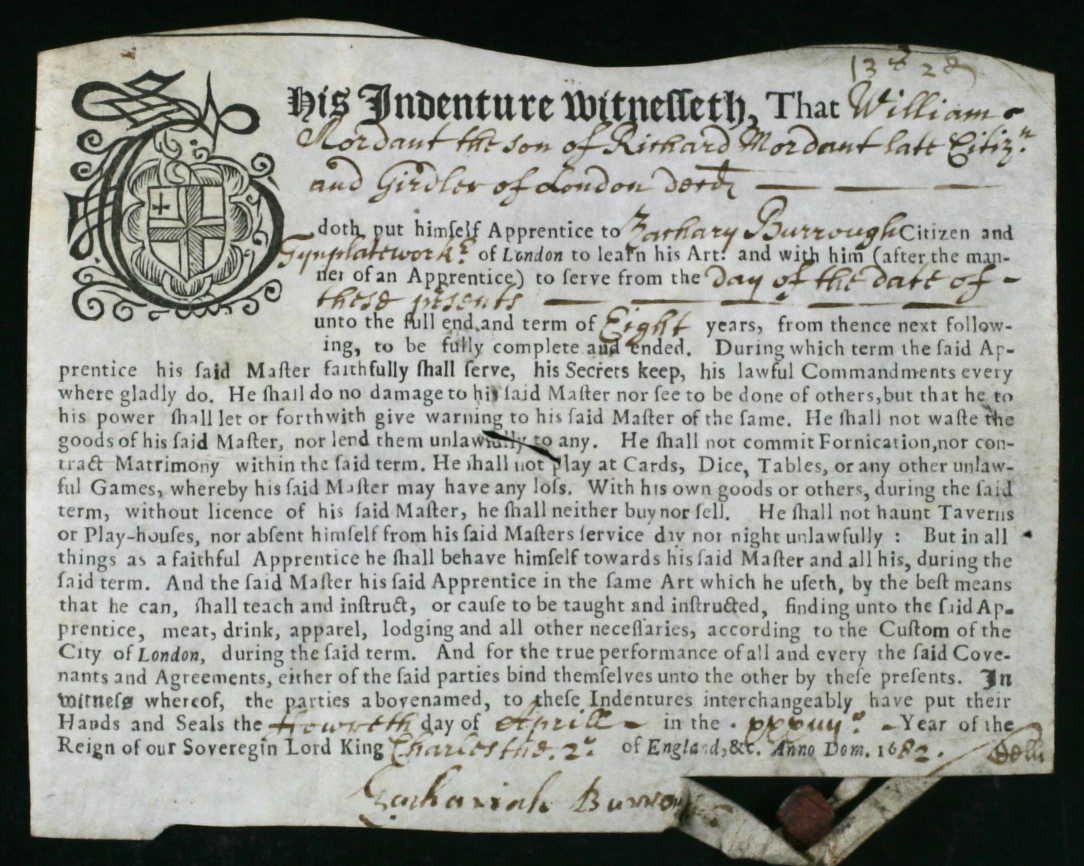 13 28
This Indenture witnesseth, That William
Mordant the son of Richard Mordant late Citizn
and Girdler of London decd
doth put himself Apprentice to Zachary Burrough Citizen and
of London to learn his Art: and with him (after the man-
ner of an Apprentice) to serve from the Day of the date of
these psents
unto the full end and term of Eight years, from thence next follow-
ing, to be fully complete and ended. During which term the said Ap-
prentice his said Master faithfully shall serve, his Secrets keep, his lawful Commandments every
where gladly do. He shall do no damage to his said Master nor see to be done of others, but that he to
his power shall let or forthwith give warning to his said Master of the same. He shall not waste the
goods of his said Master, nor lend them unlawfully to any. He shall not commit Fornication, nor con-
tract Matrimony within the said term. He shall not play at Cards, Dice, Tables, or any other unlaw-
ful Games, whereby his said Master may have any loss. With his own goods or others, during the said
term, without licence of his said Master, he shall neither buy nor sell. He shall not haunt Taverns
or Play-houses, nor absent himself from his said Masters service day nor night unlawfully : But in all
things as a faithful Apprentice he shall behave himself towards his said Master and all his, during the
said term. And the said Master his said Apprentice in the same Art which he useth, by the best means
that he can, shall teach and instruct, or cause to be taught and instructed, finding unto the said Ap-
prentice, meat, drink, apparel, lodging and all other necessaries, according to the Custom of the
City of London, during the said term. And for the true performance of all and every the said Cove-
nants and Agreements, either of the said parties bind themselves unto the other by these presents. In
witness whereof, the parties abovenamed, to these Indentures interchangeably have put their
Hands and Seals the Fowrth day of Aprill in the Year of the
Reign of our Soveregin Lord King Charles the 2d of England, &c. Anno Dom. 1682.
Zachariah Burrou